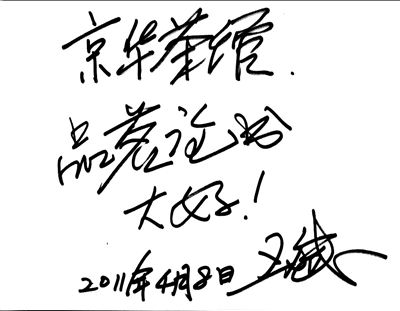 京华茶馆.
品茗论书
大好!
2011年4月8日